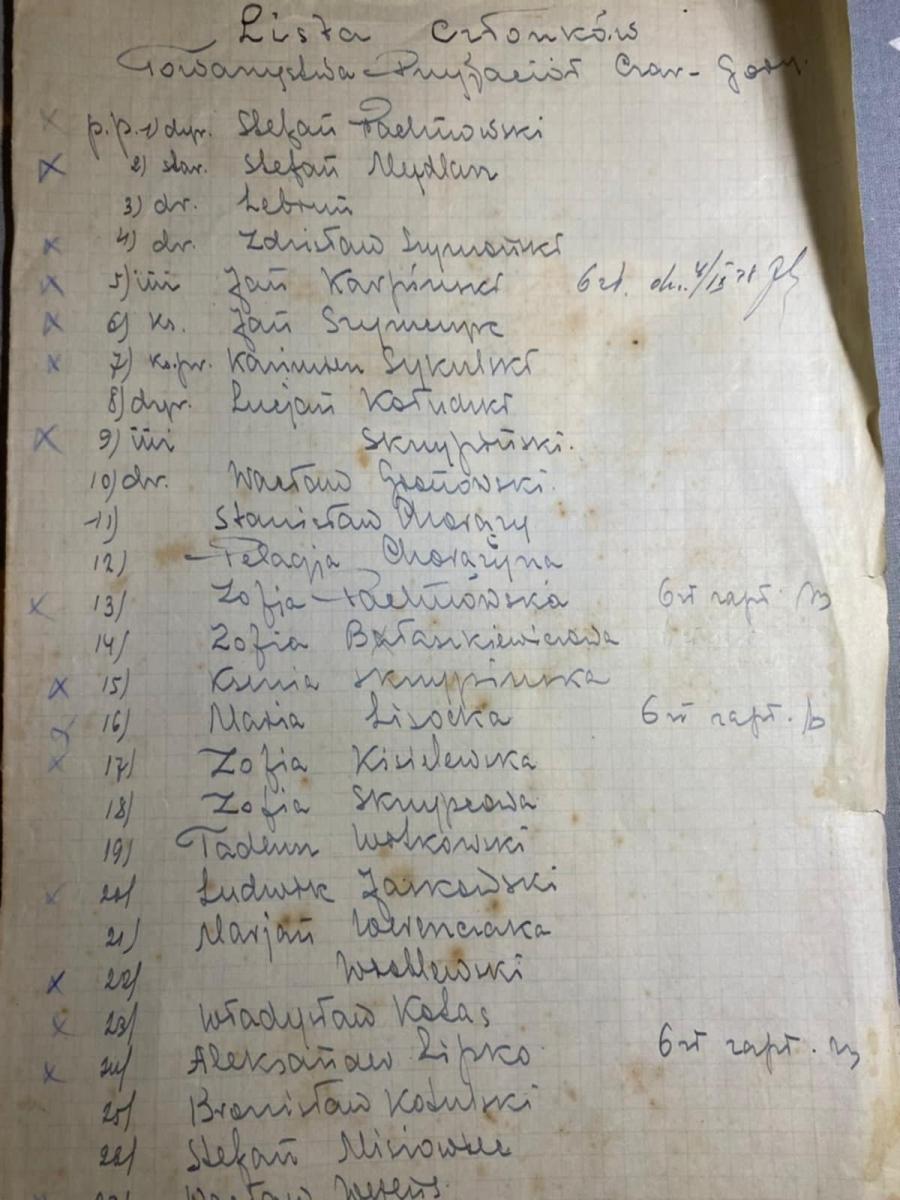 Lista Członków
Towarzystwa Przyjaciół Czar-Gory.
p.p. 1) dyr. Stefań Pachnowski
2) star. Stefań Mydlarz
3) dr. Lebruń
4) dr. Zdzisław Szymański
5) inż Jań Karpiński 6 zł. dn. 4/IX
6) Ks. Jań Szymczyk
7) ks.pr. Kazimierz Sykulski
8) dyr. Lucjań Kołudzki
9) inż Skrzypiński.
10) dr. Wacław Grońowski.
11) Stanisław Chorąży
12) Pelagja Chorążyna
13) Zofja Pachnowska 6 zł zapł.
14) Zofia Bałaszkiewiczowa
15) Ksenia Skrzypińska
16) Maria Lisocka 6 zł zapł.
17) Zofia Kisielewska
18) Zofia Skrzypcowa
19) Tadeusz Wolkowski
20) Ludwik Jankowski
21) Marjań
22) Wróblewski
23) Władysław Kołas
24) Aleksańder Lipko 6 zł zapł.
25) Bronisław Kosulski
Stefań Misiowiec
Wacław